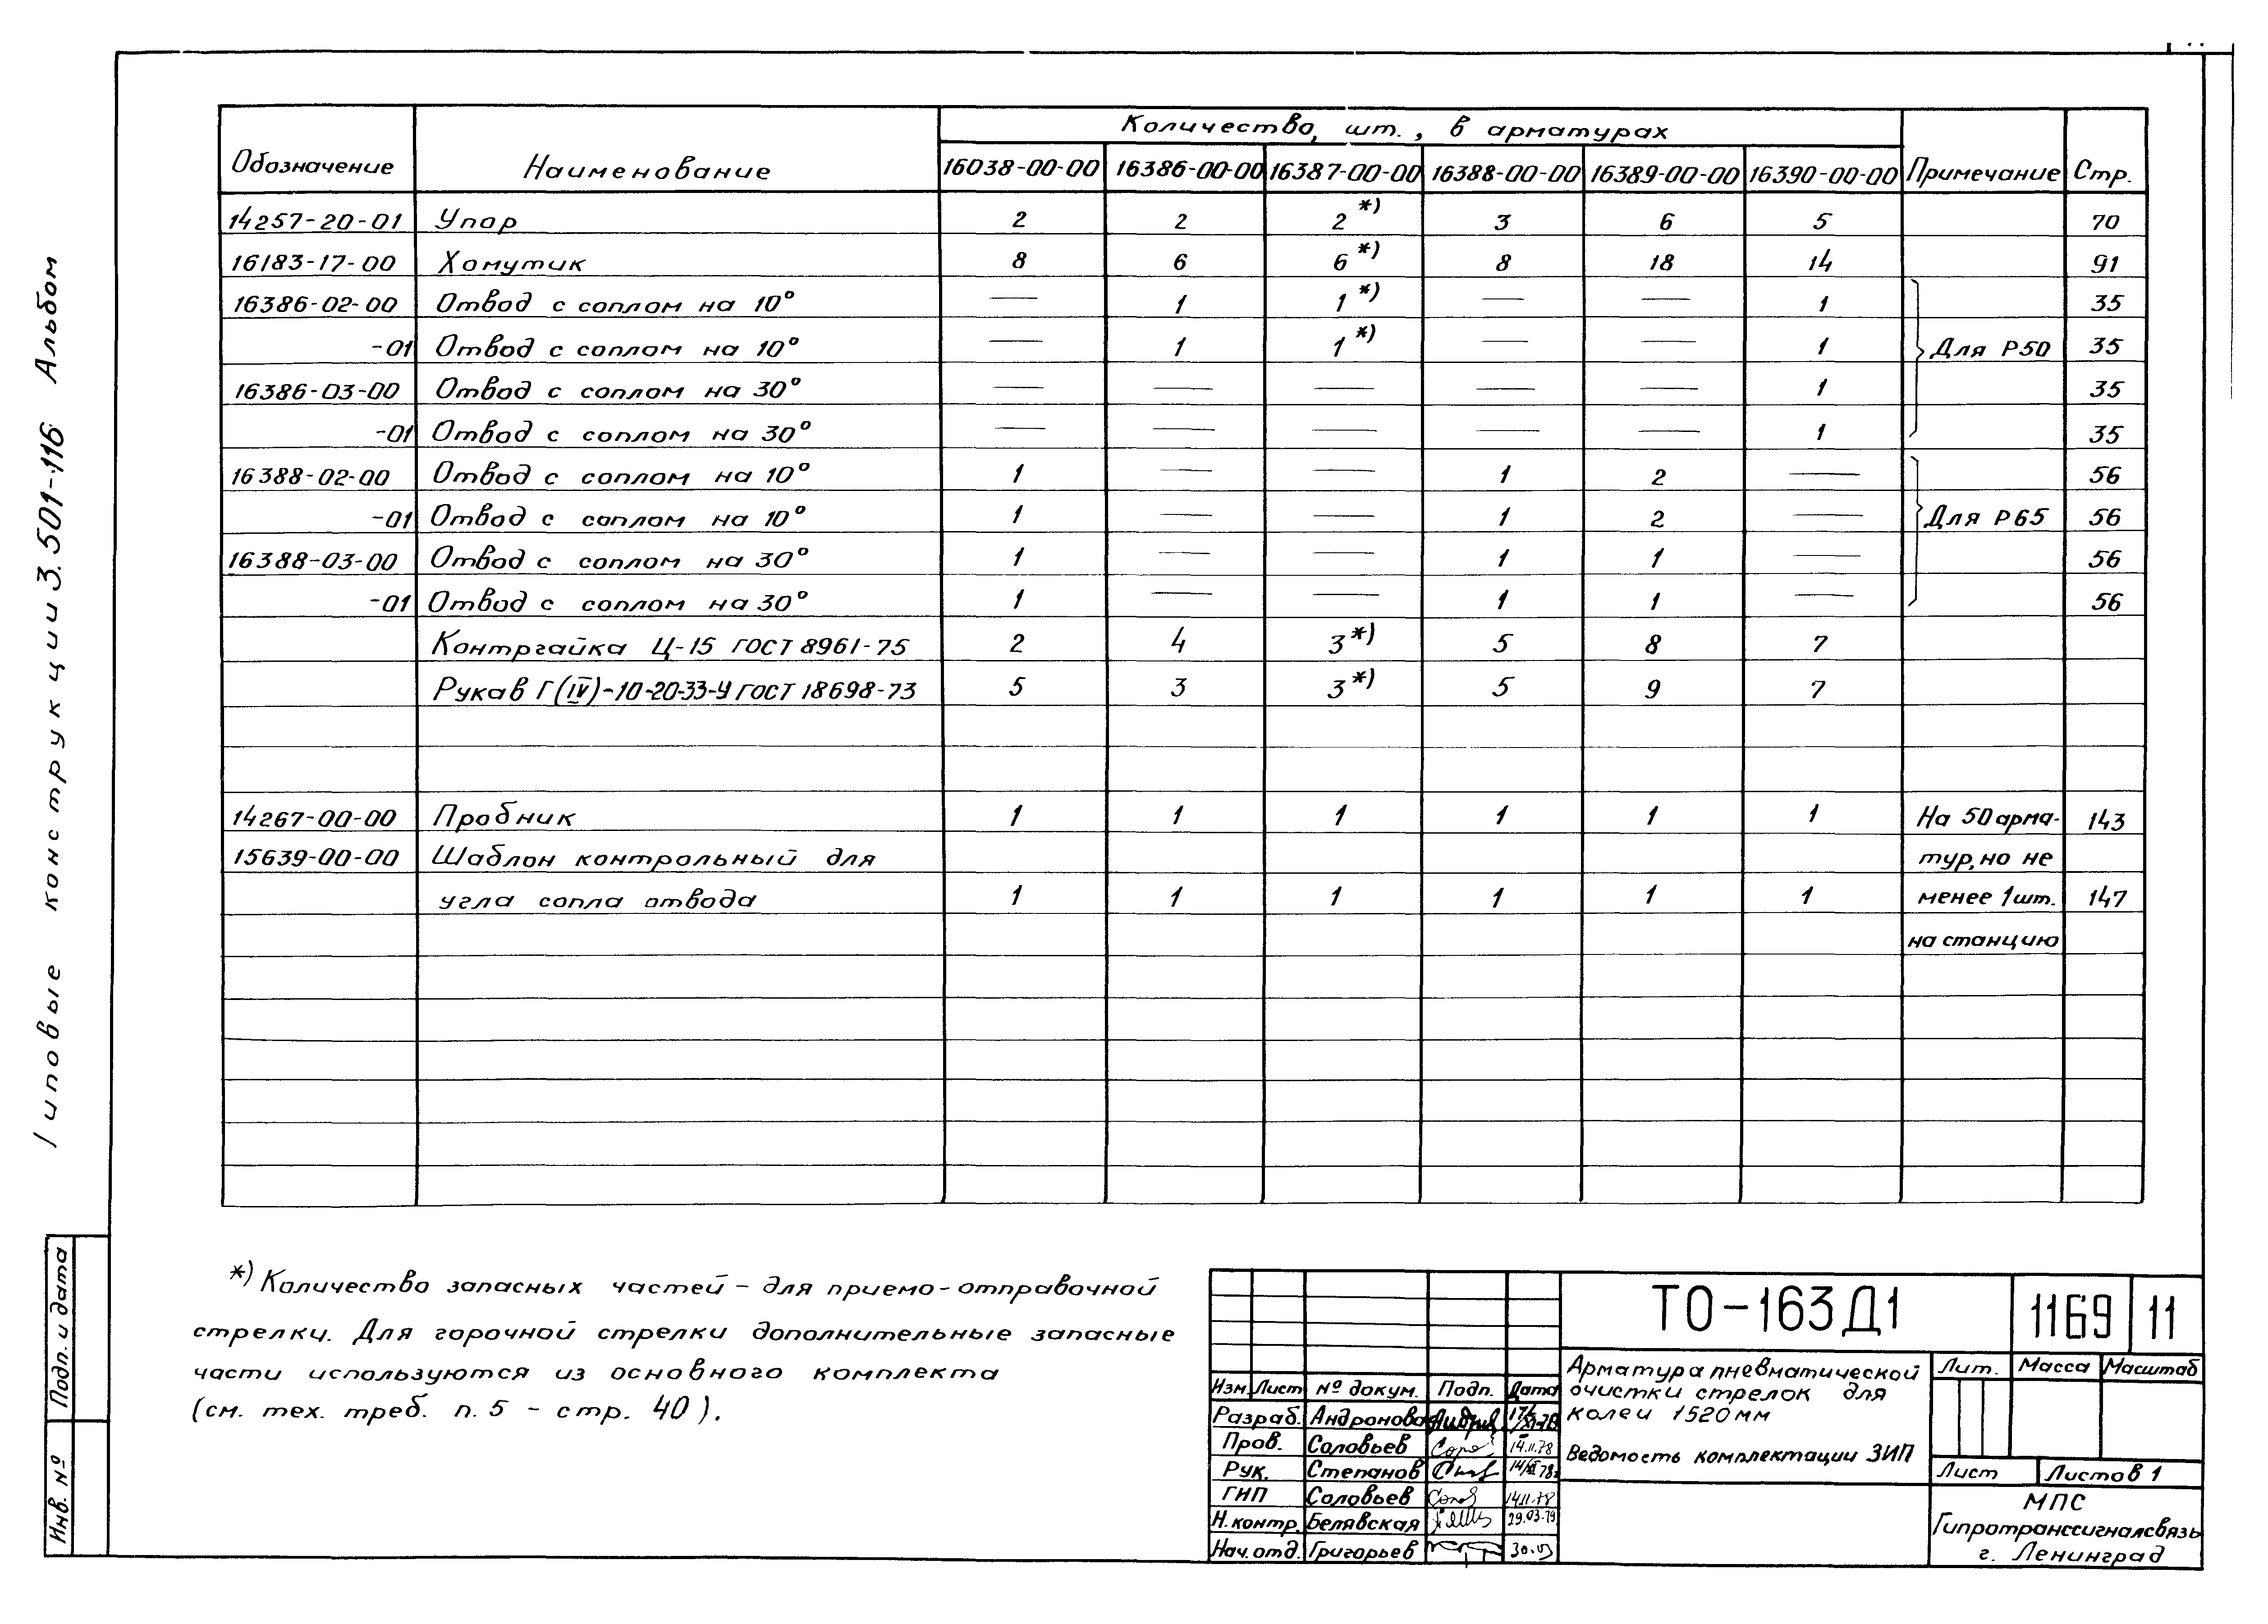 Количество, шт., в арматурах
Обозначение Наименование 16038-00-00 16386-00-00 16387-00-00 16388-00-00 16389-00-00 16390-00-00 Примечание Стр.
14257-20-01 Упор 2 2 2 *) 3 6 5 70
16183-17-00 Хомутик 8 6 6 *) 8 18 14 91
16386-02-00 Отвод с соплом на 10° — 1 1 *) — — 1 35
-01 Отвод с соплом на 10° — 1 1 *) — — 1 Для Р50 35
16386-03-00 Отвод с соплом на 30° — — — — — 1 35
-01 Отвод с соплом на 30° — — — — — 1 35
16388-02-00 Отвод с соплом на 10° 1 — — 1 2 — 56
-01 Отвод с соплом на 10° 1 — — 1 2 — Для Р65 56
16388-03-00 Отвод с соплом на 30° 1 — — 1 1 — 56
-01 Отвод с соплом на 30° 1 — — 1 1 — 56
Контргайка Ц-15 ГОСТ 8961-75 2 4 3 *) 5 8 7
Рукав Г(IV)-10-20-33-У ГОСТ 18698-73 5 3 3 *) 5 9 7
14267-00-00 Пробник 1 1 1 1 1 1 На 50 арма- 143
15639-00-00 Шаблон контрольный для тур, но не
угла сопла отвода 1 1 1 1 1 1 менее 1 шт. 147
на станцию
*) Количество запасных частей – для приемо-отправочной
стрелки. Для горочной стрелки дополнительные запасные
части используются из основного комплекта
(см. тех. треб. п. 5 – стр. 40).
ТО-163Д1 1169 11
Арматура пневматической
очистки стрелок для
колеи 1520 мм
Ведомость комплектации ЗИП
Лит. Масса Масштаб
Лист Листов 1
МПС
Гипротранссигналсвязь
г. Ленинград
Изм. Лист № докум. Подп. Дата
Разраб. Андронова
Пров. Соловьев 14.11.78
Рук. Степанов
ГИП Соловьев 14.11.78
Н. контр. Белявская 29.03.79
Нач. отд. Григорьев
Типовые конструкции 3.501-116 Альбом
Подп. и дата
Инв. №